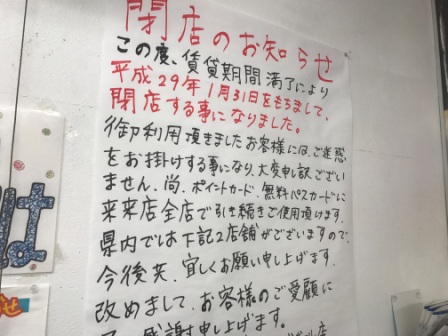 閉店のお知らせ
この度、賃貸期間満了により
平成29年1月31日をもちまして、
閉店する事になりました。
御利用頂きましたお客様には、ご迷惑
をお掛けする事になり、大変申し訳ござい
ません。尚、ポイントカード、無料パスカードに
来来店全店で引き続きご使用頂けます。
県内では下記2店舗がございますので、
今後共、宜しくお願い申し上げます。
改めまして、お客様のご愛顧に
感謝申し上げます。